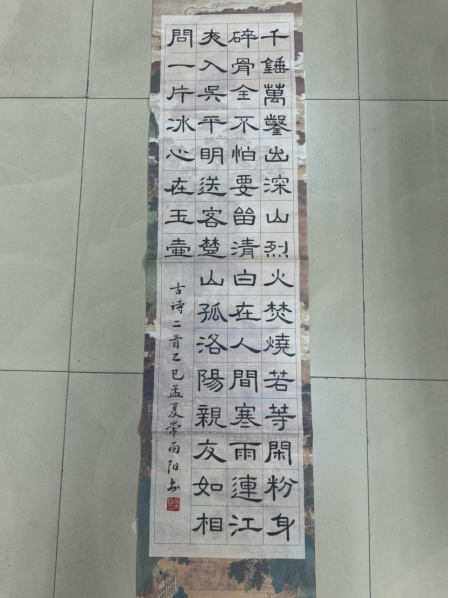 千錘萬鑿出深山烈火焚燒若等閑粉身
碎骨全不怕要留清白在人間寒雨連江
夜入吳平明送客楚山孤洛陽親友如相
問一片冰心在玉壺
古诗二首乙巳孟夏常雨阳书